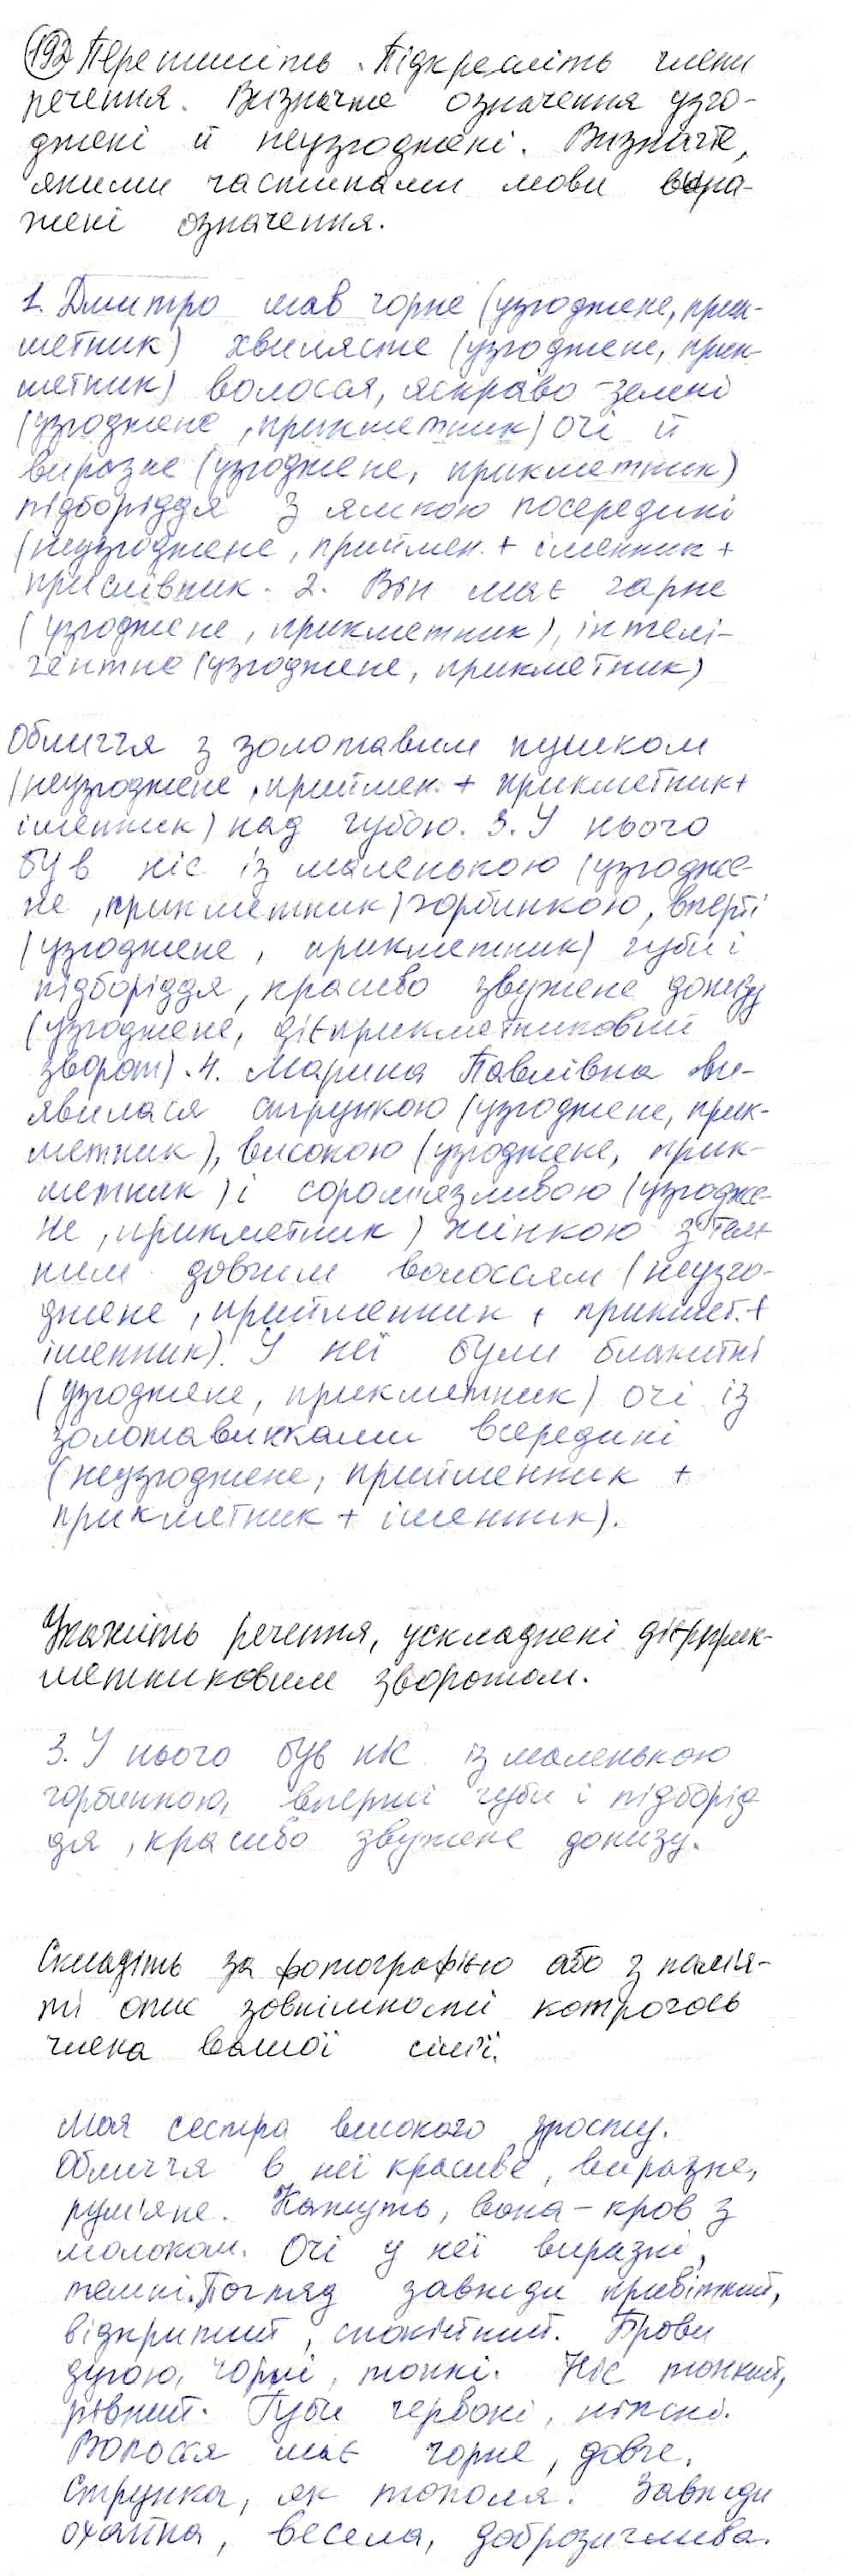 192 Перепишіть. Підкресліть члени
речення. Визначте означення узго-
джені й неузгоджені. Визначте,
якими частинами мови вира-
жені означення.
1. Дмитро мав чорне (узгоджене, прик-
метник) хвилясте (узгоджене, прик-
метник) волосся, яскраво-зелені
(узгоджене, прикметник) очі й
виразне (узгоджене, прикметник)
підборіддя з ямкою посередині
(неузгоджене, приймен. + іменник +
прислівник. 2. Він має гарне
(узгоджене, прикметник), інтелі-
гентне (узгоджене, прикметник)
Обличчя з золотавим пушком
(неузгоджене, приймен. + прикметник +
іменник) над губою. 3. У нього
був ніс із маленькою (узгодже-
не, прикметник) горбинкою, вперті
(узгоджене, прикметник) губи і
підборіддя, красиво звужене донизу
(узгоджене, дієприкметниковий
зворот). 4. Марина Павлівна ви-
явилася стрункою (узгоджене, прик-
метник), високою (узгоджене, прик-
метник) і сором'язливою (узгодже-
не, прикметник) жінкою з тем-
ним довгим волоссям (неузго-
джене, прийменник + прикмет. +
іменник). У неї були блакитні
(узгоджене, прикметник) очі із
золотавинками всередині
(неузгоджене, прийменник +
прикметник + іменник).
Укажіть речення, ускладнені дієприк-
метниковим зворотом.
3. У нього був ніс із маленькою
горбинкою, вперті губи і підборід
дя, красиво звужене донизу.
Складіть за фотографією або з пам'я-
ті опис зовнішності котрогось
члена вашої сім'ї.
Моя сестра високого зросту.
Обличчя в неї красиве, виразне,
рум'яне. Кажуть, вона - кров з
молоком. Очі у неї виразні,
темні. Погляд завжди привітний,
відкритий, спокійний. Брови
дугою, чорні, тонкі. Ніс тонкий,
рівний. Губи червоні, ніжні.
Волосся має чорне, довге.
Струнка, як тополя. Завжди
охайна, весела, доброзичлива.